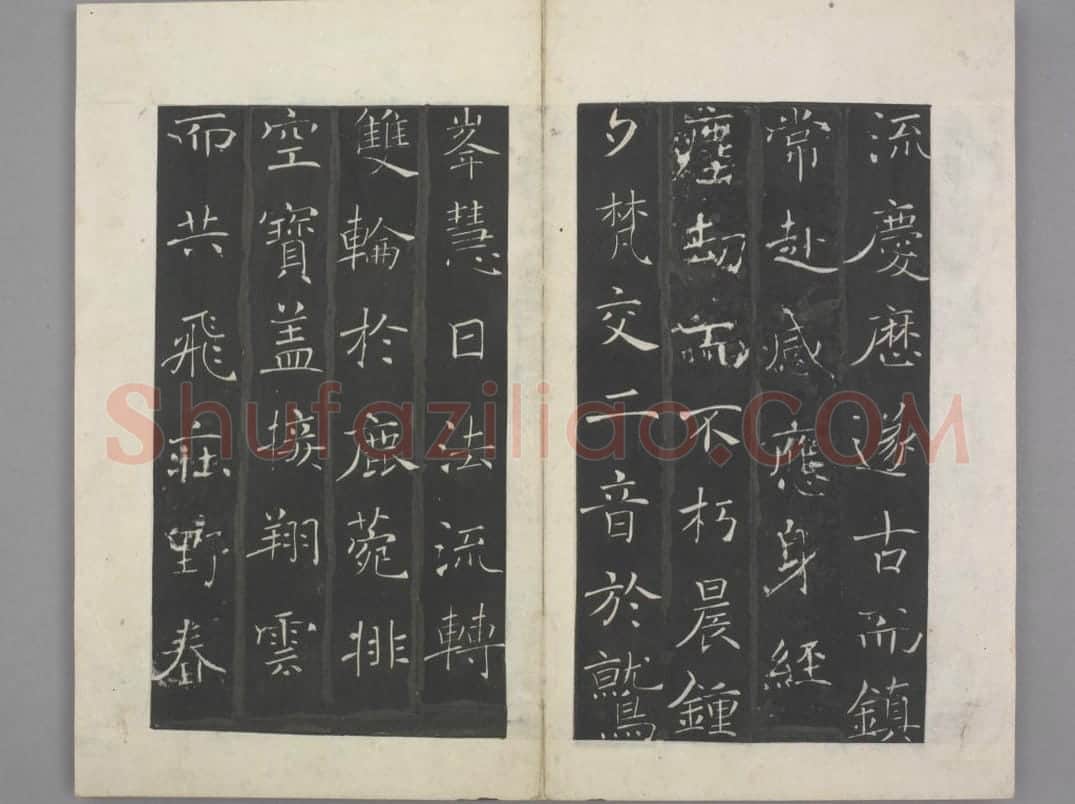 流慶歷遂古而鎮
常赴感應身經
塵劫而不朽晨鍾
夕梵交二音於鷲
峯慧日法流轉
雙輪於鹿菀排
空寶盖接翔雲
而共飛莊野春
Shufaziliao.COM